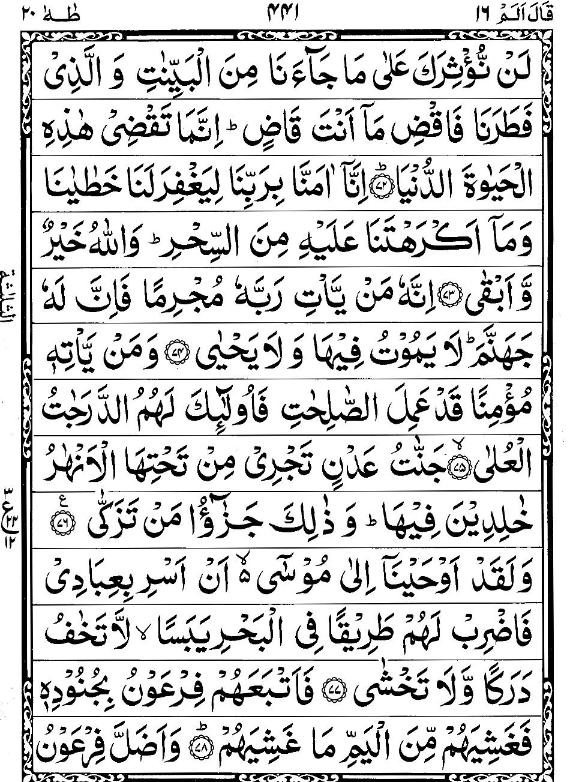 قَالَ اَلَمْ ١٦ ٤٤١ طٰهٰ ٢٠
لَنْ نُّؤْثِرَكَ عَلٰى مَا جَآءَنَا مِنَ الْبَيِّنٰتِ وَ الَّذِىْ
فَطَرَنَا فَاقْضِ مَآ اَنْتَ قَاضٍ ؕ اِنَّمَا تَقْضِىْ هٰذِهِ
الْحَيٰوةَ الدُّنْيَا ؕ ﴿٧٢﴾ اِنَّآ اٰمَنَّا بِرَبِّنَا لِيَغْفِرَ لَنَا خَطٰيٰنَا
وَمَآ اَكْرَهْتَنَا عَلَيْهِ مِنَ السِّحْرِ ؕ وَاللّٰهُ خَيْرٌ
وَّ اَبْقٰى ﴿٧٣﴾ اِنَّهٗ مَنْ يَّاْتِ رَبَّهٗ مُجْرِمًا فَاِنَّ لَهٗ
جَهَنَّمَ ؕ لَا يَمُوْتُ فِيْهَا وَ لَا يَحْيٰى ﴿٧٤﴾ وَ مَنْ يَّاْتِهٖ
مُؤْمِنًا قَدْ عَمِلَ الصّٰلِحٰتِ فَاُولٰٓئِكَ لَهُمُ الدَّرَجٰتُ
الْعُلٰى ۙ ﴿٧٥﴾ جَنّٰتُ عَدْنٍ تَجْرِىْ مِنْ تَحْتِهَا الْاَنْهٰرُ
خٰلِدِيْنَ فِيْهَا ؕ وَ ذٰلِكَ جَزٰٓؤُا مَنْ تَزَكّٰى ﴿٧٦﴾ ع
وَ لَقَدْ اَوْحَيْنَآ اِلٰى مُوْسٰٓى ۙ اَنْ اَسْرِ بِعِبَادِىْ
فَاضْرِبْ لَهُمْ طَرِيْقًا فِى الْبَحْرِ يَبَسًا ۙ لَّا تَخٰفُ
دَرَكًا وَّلَا تَخْشٰى ﴿٧٧﴾ فَاَتْبَعَهُمْ فِرْعَوْنُ بِجُنُوْدِهٖ
فَغَشِيَهُمْ مِّنَ الْيَمِّ مَا غَشِيَهُمْ ؕ ﴿٧٨﴾ وَاَضَلَّ فِرْعَوْنُ
الثلثة
٣
ع ٢٢
١٢